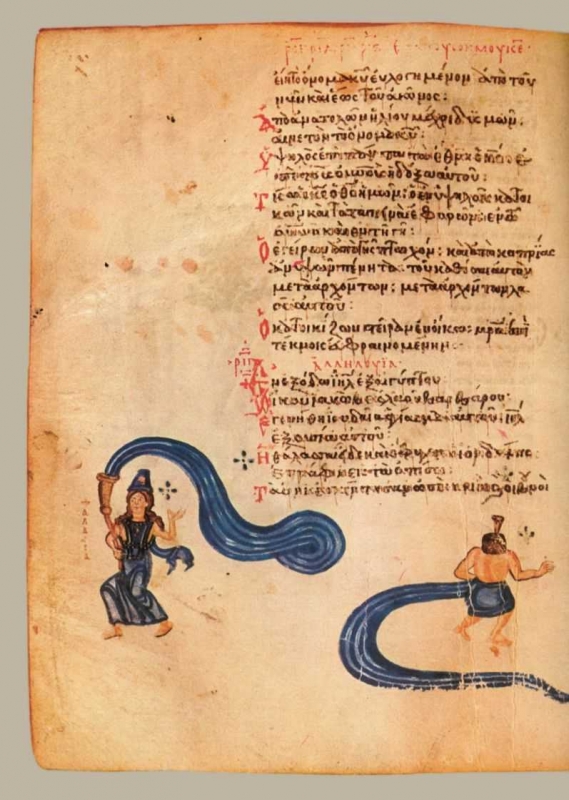 εἴη τὸ ὄνομα κυ εὐλογημένον ἀπὸ τοῦ
νῦν καὶ ἕως τοῦ αἰῶνος:
Ἀπὸ ἀνατολῶν ἡλίου μέχρι δυσμῶν,
αἰνετὸν τὸ ὄνομα κυ:
Ὑψηλὸς ἐπὶ πάντα τὰ ἔθνη ὁ κς ἐ
ἡ δόξα αὐτοῦ:
Τίς ὡς κς ὁ θς ἡμῶν; ὁ ἐν ὑψηλοῖς κατοι
κῶν καὶ τὰ ταπεινὰ ἐφορῶν; ἐν τῷ
οὐνῷ καὶ ἐν τῇ γῇ:
Ὁ ἐγείρων ἀπὸ γῆς πτωχόν; καὶ ἀπὸ κοπρίας
ἀνυψῶν πένητα; τοῦ καθίσαι αὐτὸν
μετὰ ἀρχόντων; μετὰ ἀρχόντων λα
οῦ αὐτοῦ:
Ὁ κατοικίζων στεῖραν ἐν οἴκῳ; μρα ἐπὶ
τέκνοις εὐφραινομένην:
ΑΛΛΗΛΟΥΙΑ
ριγ
Ἐν ἐξόδῳ ιηλ ἐξ αἰγύπτου
οἴκου ιακωβ ἐκ λαοῦ βαρβάρου:
Ἐγενήθη ἰουδαία ἁγίασμα αὐτοῦ ιηλ
ἐξουσία αὐτοῦ:
Ἡ θάλασσα εἶδεν καὶ ἔφυγεν ὁ ἰορδάνης
ἐστράφη εἰς τὰ ὀπίσω:
Τὰ ὄρη ἐσκίρτησαν ὡσεὶ κριοὶ καὶ οἱ βουνοὶ
ΘΑΛΑΣΣΑ